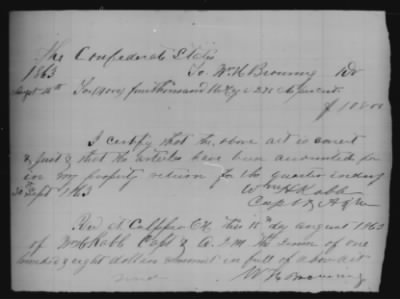 The Confederate States
1863 To Wm H Browning Dr
Sept 10th To four thousand Hay
$108.00
I certify that the above act is correct
& Just & that the articles have been accounted for
in my property return for the quarter ending
30th Sept 1863 Wm H Rabb
Capt & AQM
Recd at Culpeper CH this 15th day August 1863
of Wm H Rabb Capt & A.Q.M. the sum of one
hundred & eight dollars amount in full of above act
W H Browning